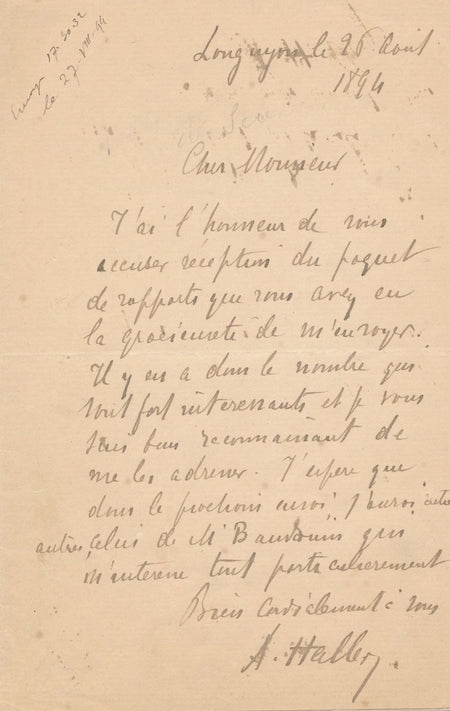 Envoyé 17.30.32
le 27-VIII-94
Longuyon le 26 Août
1894
Cher Monsieur
J'ai l'honneur de vous
accuser réception du paquet
de rapports que vous avez eu
la gracieuseté de m'envoyer.
Il y en a dans le nombre qui
sont fort intéressants et je vous
suis bien reconnaissant de
me les adresser. J'espère que
dans le prochain envoi j'aurai entre
autres celui de Mr Baudouin qui
m'intéresse tout particulièrement
Bien cordialement à vous
A. Haller